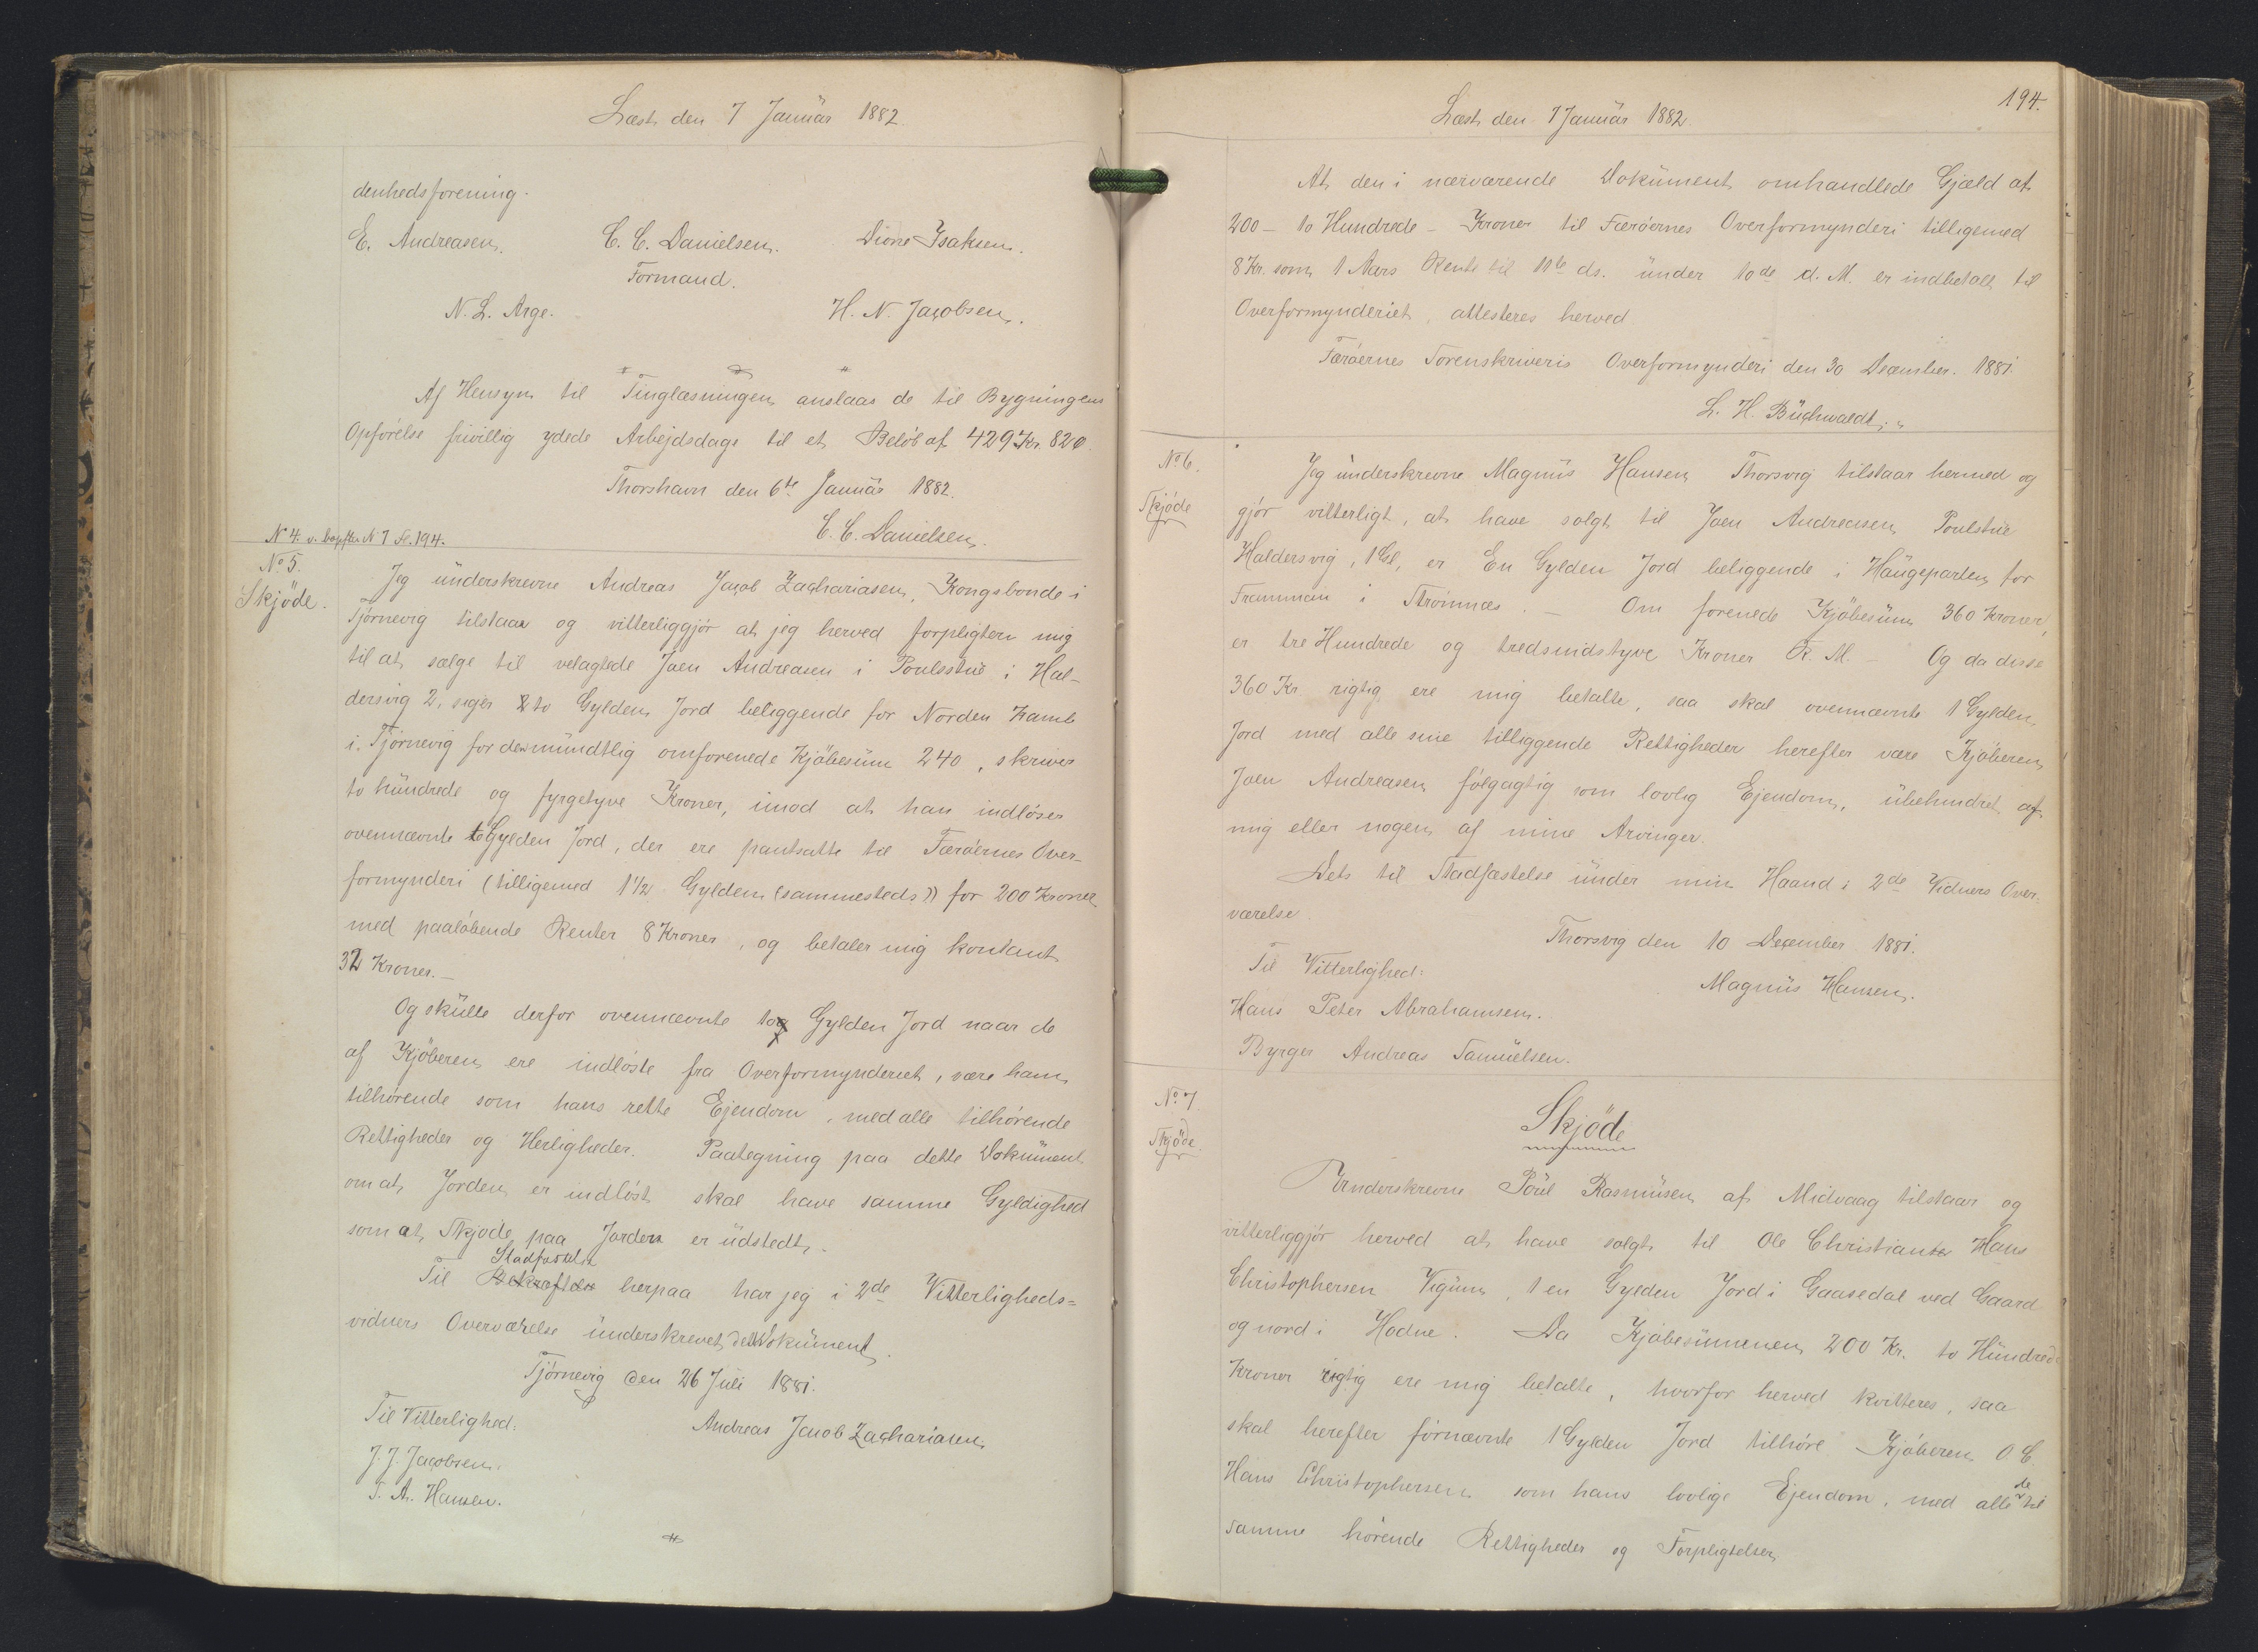 Læst den 7 Januar 1882.
denhedsforening.
E. Andreasen. C. C. Danielsen. Dione Isaksen.
Formand.
N. L. Arge. H. N. Jacobsen.
Af Hensyn til Tinglæsningen anslaas de til Bygningens
Opførelse frivillig ydede Arbejdsdage til et Beløb af 429 Kr. 82 ø.
Thorshavn den 6te Januar 1882.
C. C. Danielsen.
N 4. v. N 7 Fo. 194.
No 5.
Skjøde.
Jeg underskrevne Andreas Jacob Zachariasen, Kongsbonde i
Tjørnevig tilstaar og vitterliggjør at jeg herved forpligter mig
til at sælge til velagtede Joen Andreasen i Poulsstue i Hal-
dersvig 2, siger to Gylden Jord beliggende for Norden Kamb
i Tjørnevig for den mundtlig omforenede Kjøbesum 240, skriver
to hundrede og fyrgetyve Kroner, imod at han indløser
ovennævnte to Gylden Jord, der ere pantsatte til Færøernes Over-
formynderi (tilligemed 1 1/2 Gylden (sammesteds?)) for 200 Kroner
med paaløbende Renter 8 Kroner, og betaler mig kontant
32 Kroner.—
Og skulle derfor ovennævnte to Gylden Jord naar de
af Kjøberen ere indløste fra Overformynderiet, være ham
tilhørende som hans rette Ejendom, med alle tilhørende
Rettigheder og Herligheder. Paategning paa dette Dokument
om at Jorden er indløst skal have samme Gyldighed
som at Skjøde paa Jorden er udstedt.
Stadfæstelse
Til Bekræftelse herpaa har jeg i 2de Vitterligheds=
vidners Overværelse underskrevet dette Dokument.
Tjørnevig den 26 Juli 1881.
Til Vitterlighed: Andreas Jacob Zachariasen.
J. J. Jacobsen.
T. A. Hansen.
194.
Læst den 7 Januar 1882.
At den i nærværende Dokument omhandlede Gjæld af
200 — to Hundrede — Kroner til Færøernes Overformynderi tilligemed
8 Kr. som 1 Aars Rente til 11te ds. under 10de d. M. er indbetalt til
Overformynderiet, attesteres herved
Færøernes Sorenskriveris Overformynderi den 30 December. 1881.
L. H. Buchwaldt.
No 6.
Skjøde
Jeg underskrevne Magnus Hansen Thorsvig tilstaar hermed og
gjør vitterligt, at have solgt til Joen Andreasen Poulstue
Haldersvig, 1 Gl, er En Gylden Jord beliggende i Haugeparten for
Frammam i Strømnæs. — Om forenede Kjøbesum 360 Kroner,
er tre Hundrede og tredsindstyve Kroner R. M. — Og da disse
360 Kr. rigtig ere mig betalte, saa skal ovennævnte 1 Gylden
Jord med alle sine tilliggende Rettigheder herefter være Kjøberen
Joen Andreasen følgagtig som lovlig Ejendom, ubehindret af
mig eller nogen af mine Arvinger.
Dets til Stadfæstelse under min Haand i 2de Vidners Over-
værelse.
Thorsvig den 10 December 1881.
Til Vitterlighed: Magnus Hansen.
Hans Peter Abrahamsen.
Byrger Andreas Samuelsen.
No 7
Skjøde.
Skjøde
Underskrevne Poul Rasmusen af Midvaag tilstaar og
vitterliggjør herved at have solgt til Ole Christian Hans
Christophersen Vigum, 1 en Gylden Jord i Gaasedal ved Gaard
og nord i Hodne. Da Kjøbesummen 200 Kr. to Hundrede
Kroner rigtig ere mig betalte, hvorfor herved kvitteres, saa
skal herefter fornævnte 1 Gylden Jord tilhøre Kjøberen O C.
Hans Christophersen som hans lovlige Ejendom, med alle de til
samme hørende Rettigheder og Forpligtelser